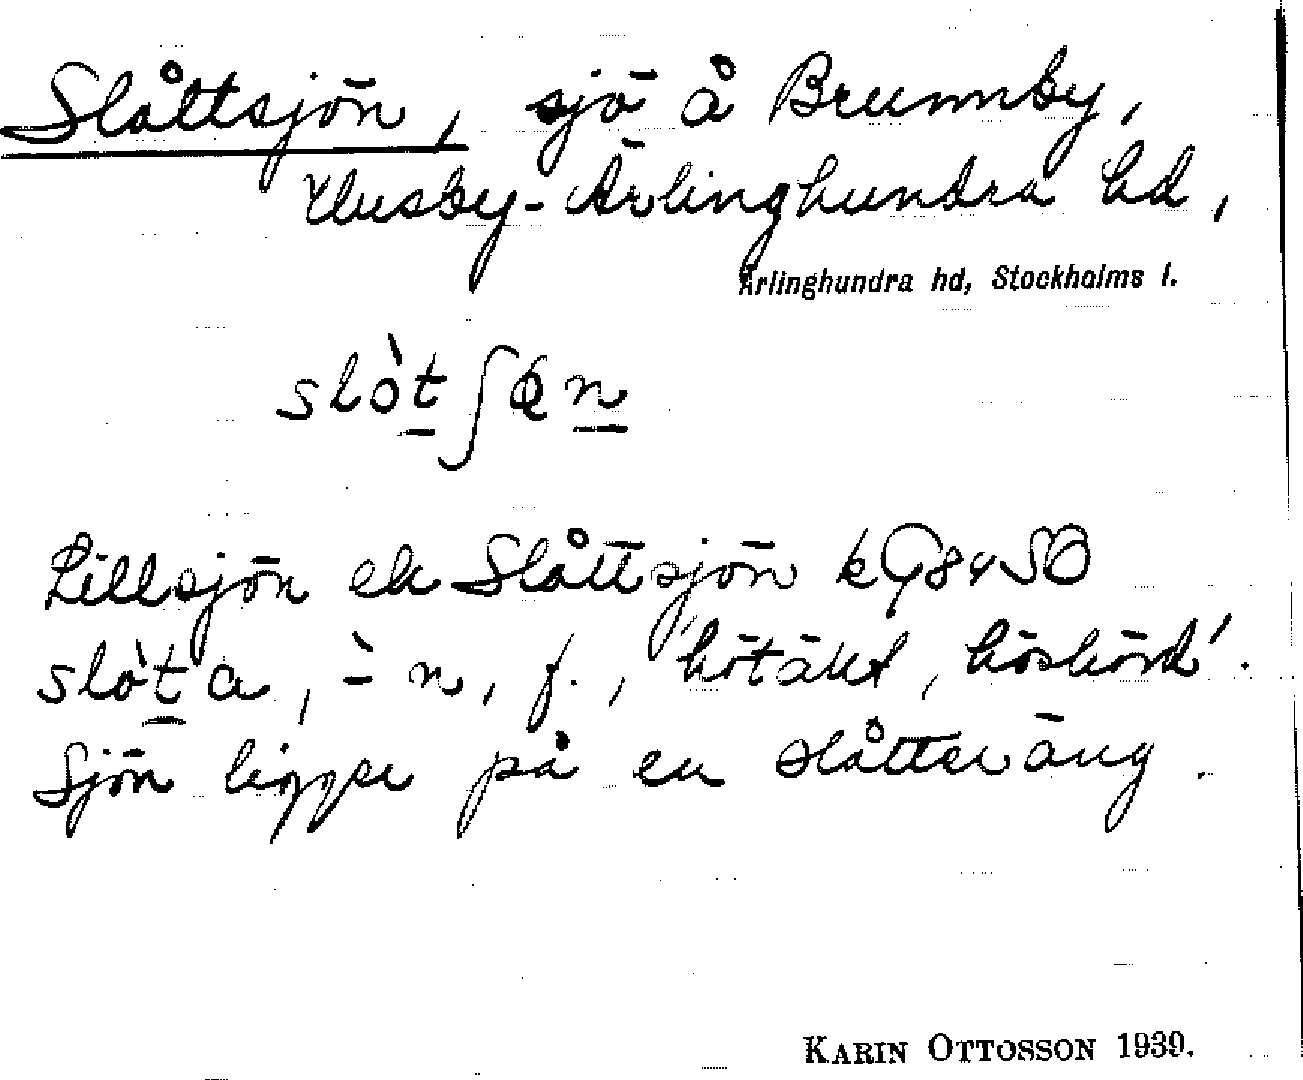 Slåttsjön, sjö å Brunnby,
Husby-Ärlinghundra hd,
Ärlinghundra hd, Stockholms l.
slòtʃɷn
Lillsjön el. Slåttsjön kG84SO
slòta, -̀n, f., 'hötäkt, höskörd'.
Sjön ligger på en slåtteräng.
KARIN OTTOSSON 1939.